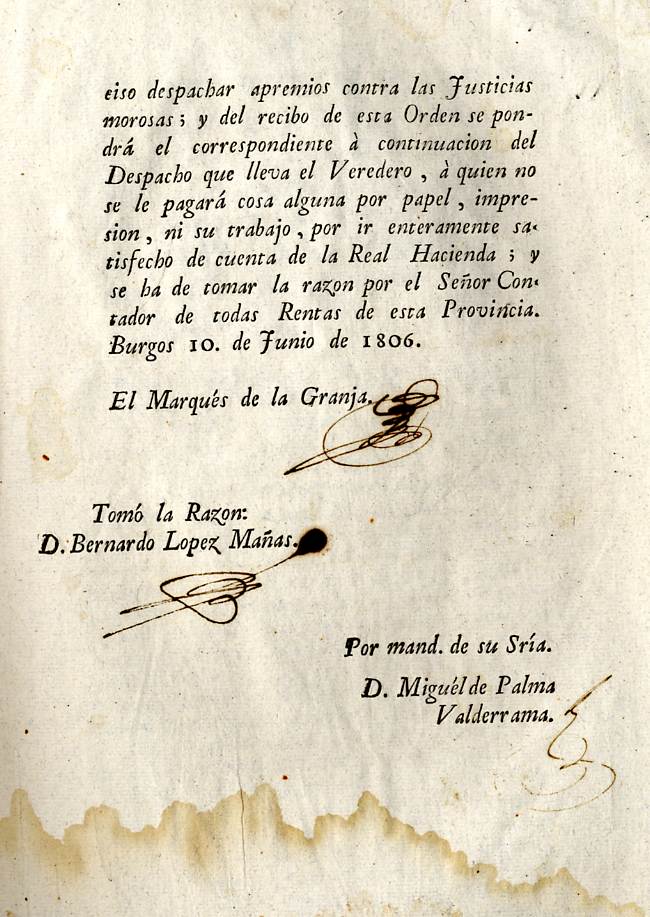 ciso despachar apremios contra las Justicias
morosas; y del recibo de esta Orden se pon-
drá el correspondiente à continuacion del
Despacho que lleva el Veredero, à quien no
se le pagará cosa alguna por papel, impre-
sion, ni su trabajo, por ir enteramente sa-
tisfecho de cuenta de la Real Hacienda; y
se ha de tomar la razon por el Señor Con-
tador de todas Rentas de esta Provincia.
Burgos 10. de Junio de 1806.
El Marqués de la Granja.
Tomó la Razon:
D. Bernardo Lopez Mañas.
Por mand. de su Sría.
D. Miguél de Palma
Valderrama.